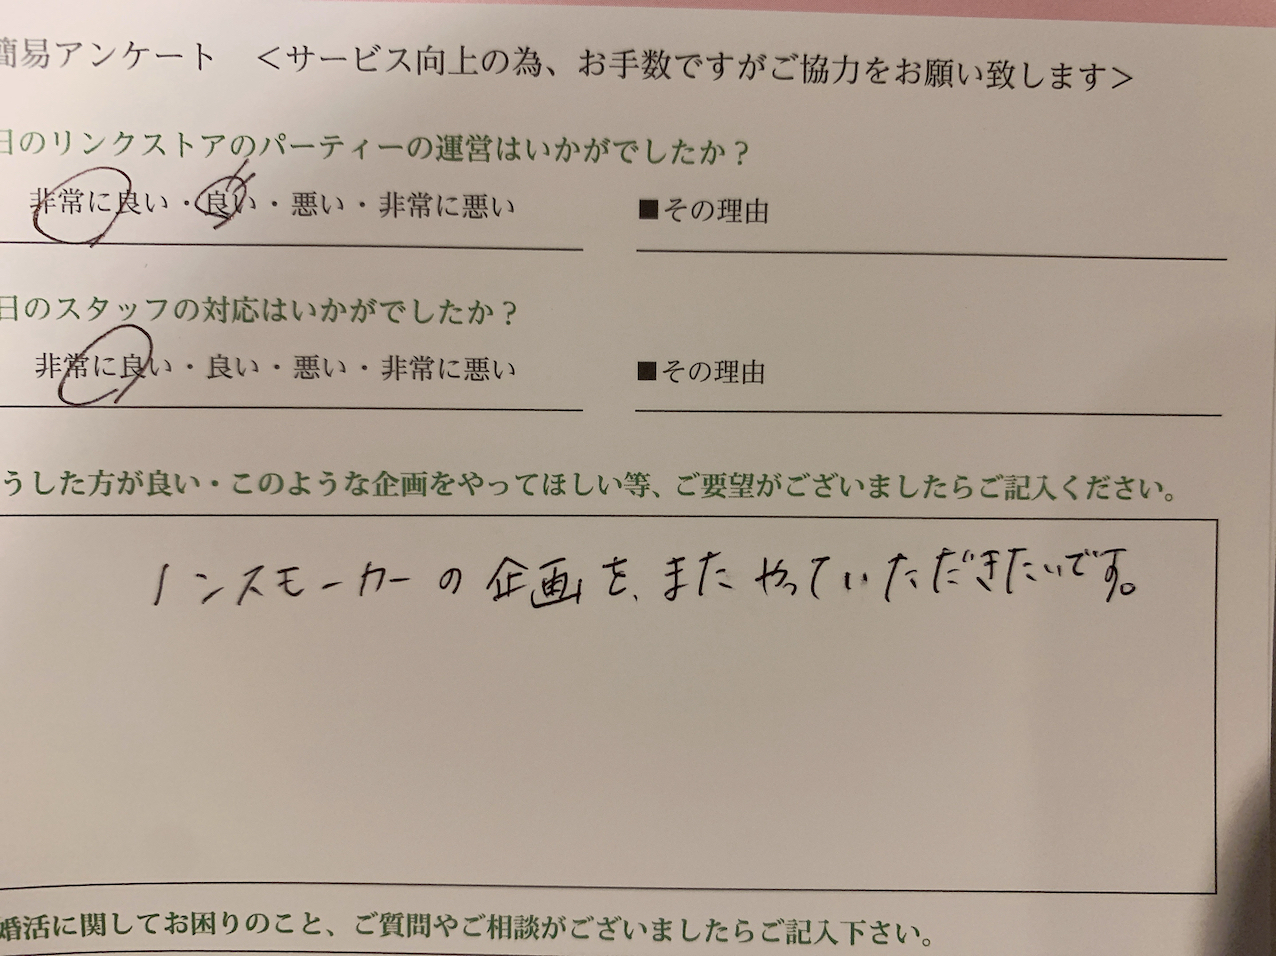 簡易アンケート ＜サービス向上の為、お手数ですがご協力をお願い致します＞
日のリンクストアのパーティーの運営はいかがでしたか？
非常に良い・良い・悪い・非常に悪い ■その理由
日のスタッフの対応はいかがでしたか？
非常に良い・良い・悪い・非常に悪い ■その理由
うした方が良い・このような企画をやってほしい等、ご要望がございましたらご記入ください。
ノンスモーカーの企画を、またやっていただきたいです。
婚活に関してお困りのこと、ご質問やご相談がございましたらご記入下さい。